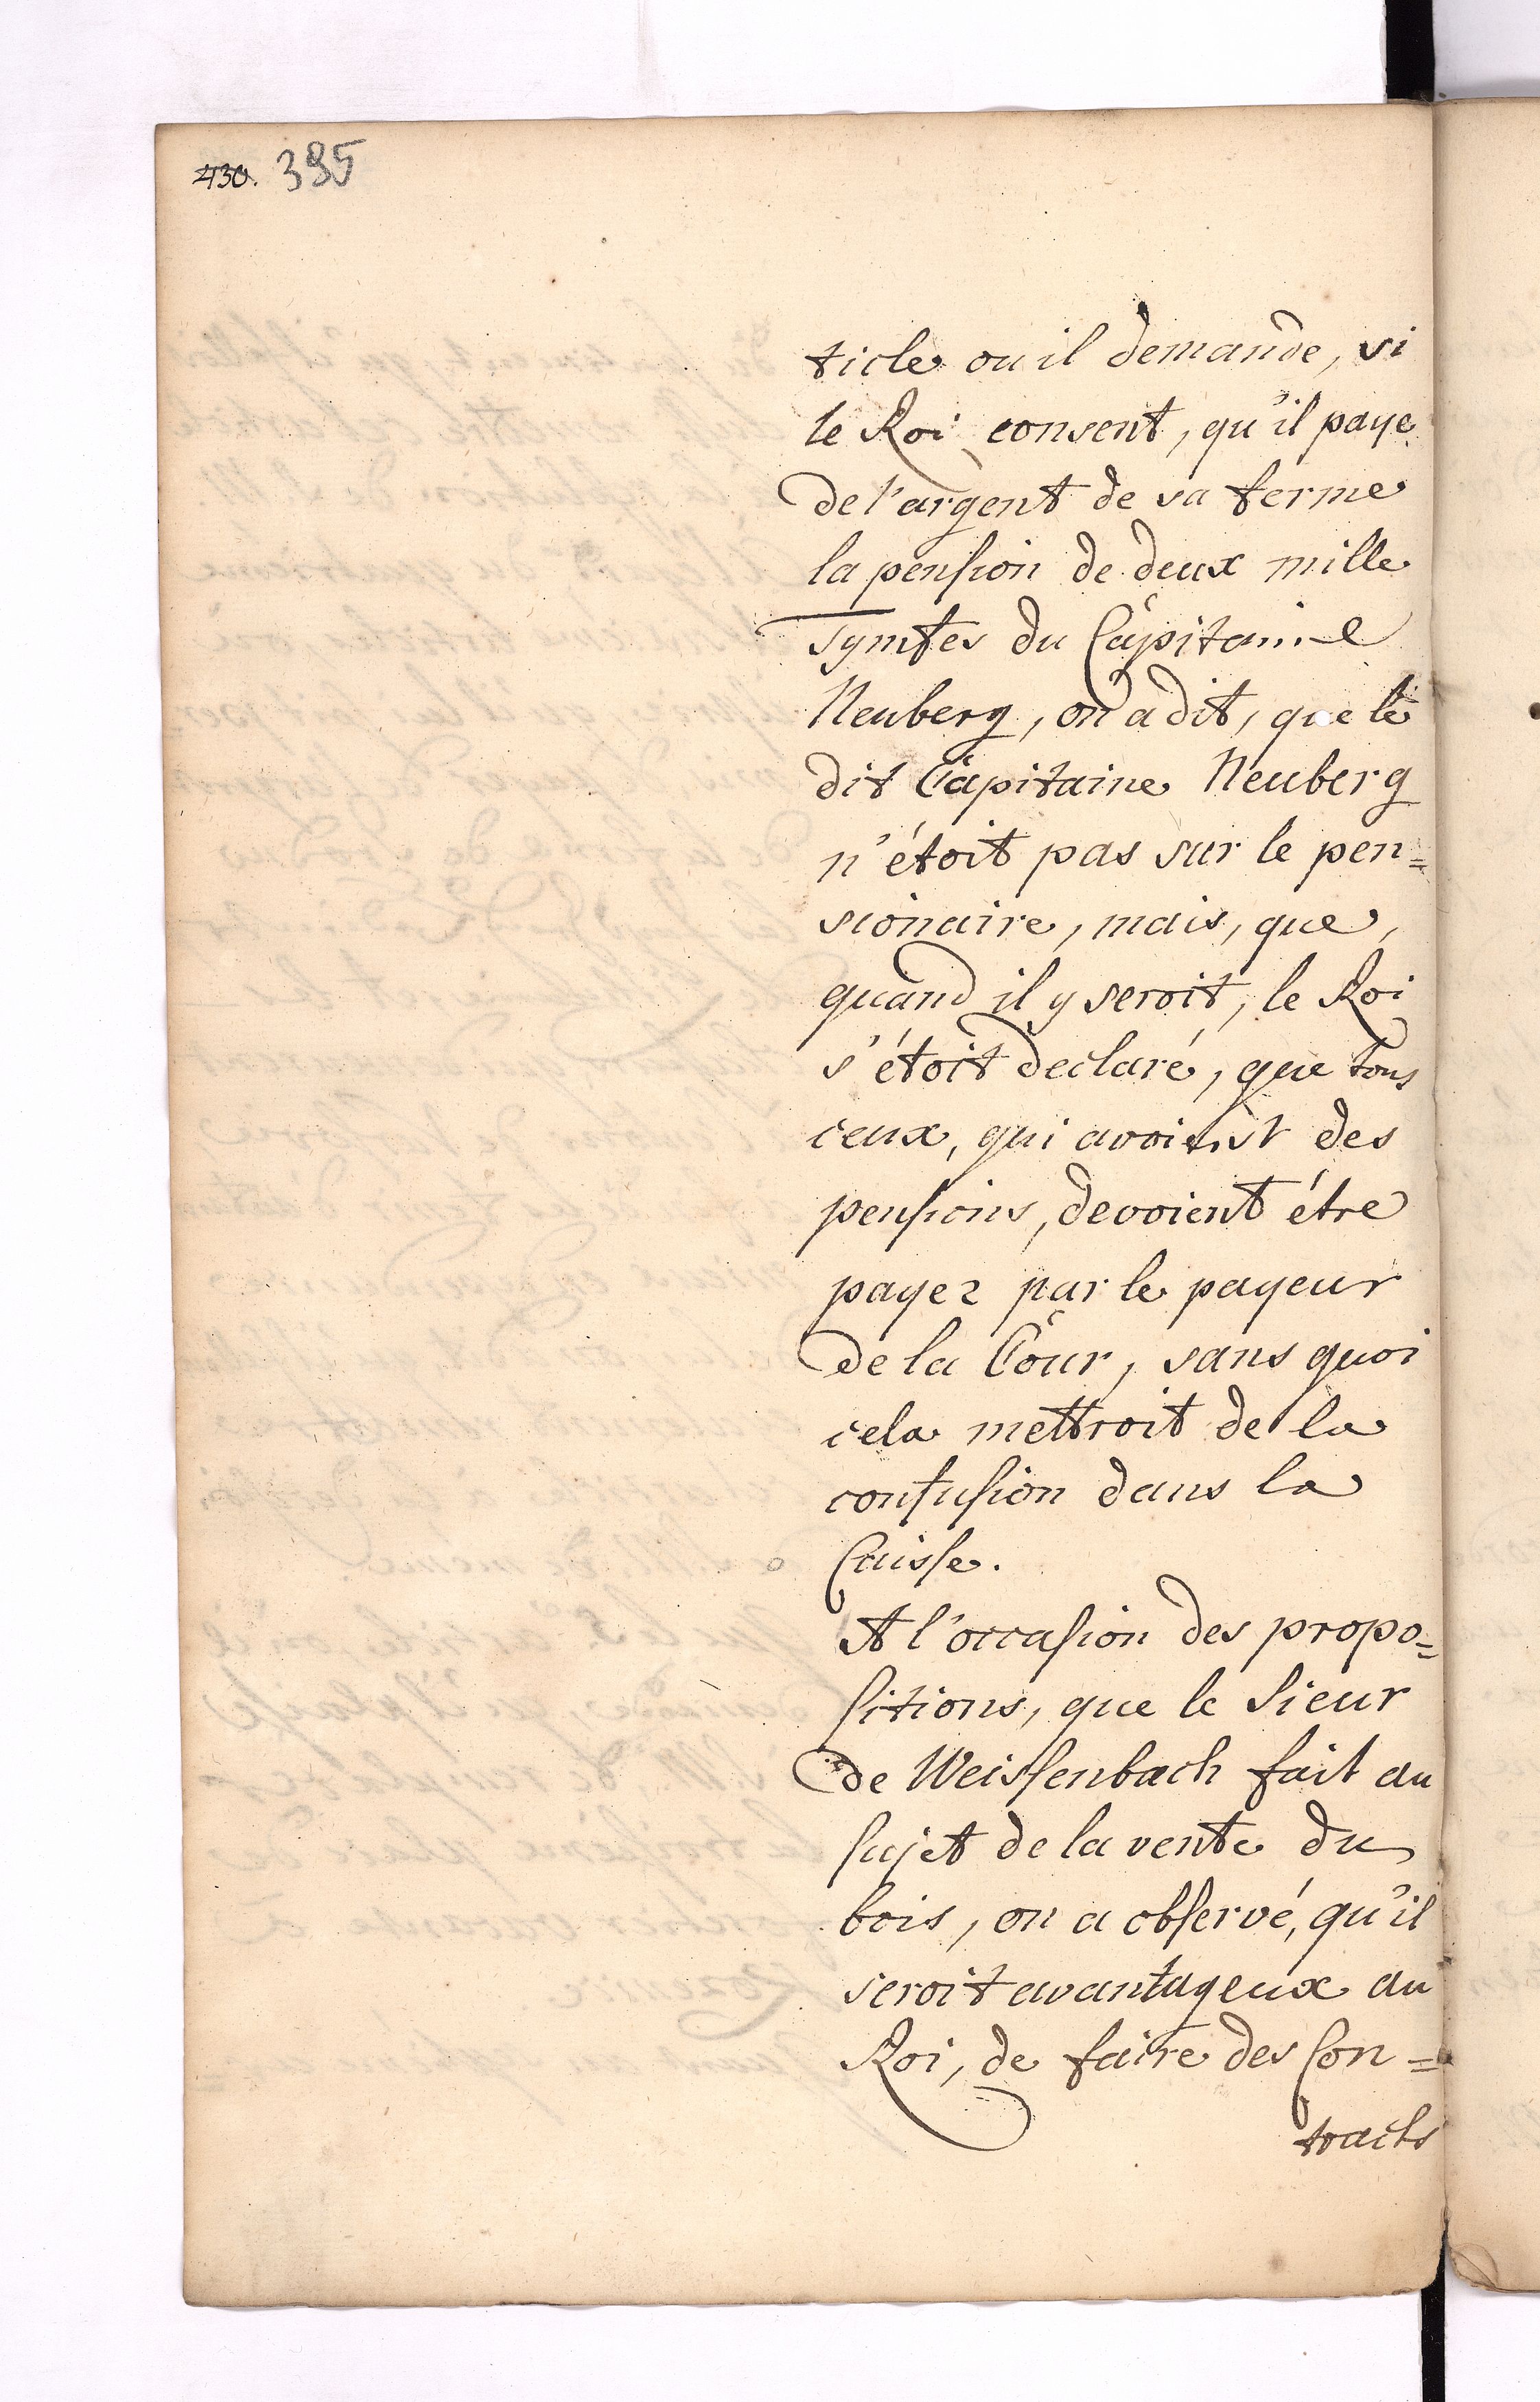 430. 395
ticle ou il demande, si
le Roi consent, qu'il paye
de l'argent de sa ferme
la pension de deux mille
Tymfes du Capitaine
Neuberg, on a dit, que le
dit Capitaine Neuberg
n'étoit pas sur le pen=
sionaire, mais, que,
quand il y seroit, le Roi
s'étoit declaré, que tous
ceux, qui avoient des
pensions, devoient étre
payez par le payeur
de la Cour, sans quoi
cela mettroit de la
confusion dans la
Caisse.
A l'occasion des propo=
sitions, que le Sieur
de Weissenbach fait au
sujet de la vente du
bois, on a observé, qu'il
seroit avantageux au
Roi, de faire des Con=
tracts